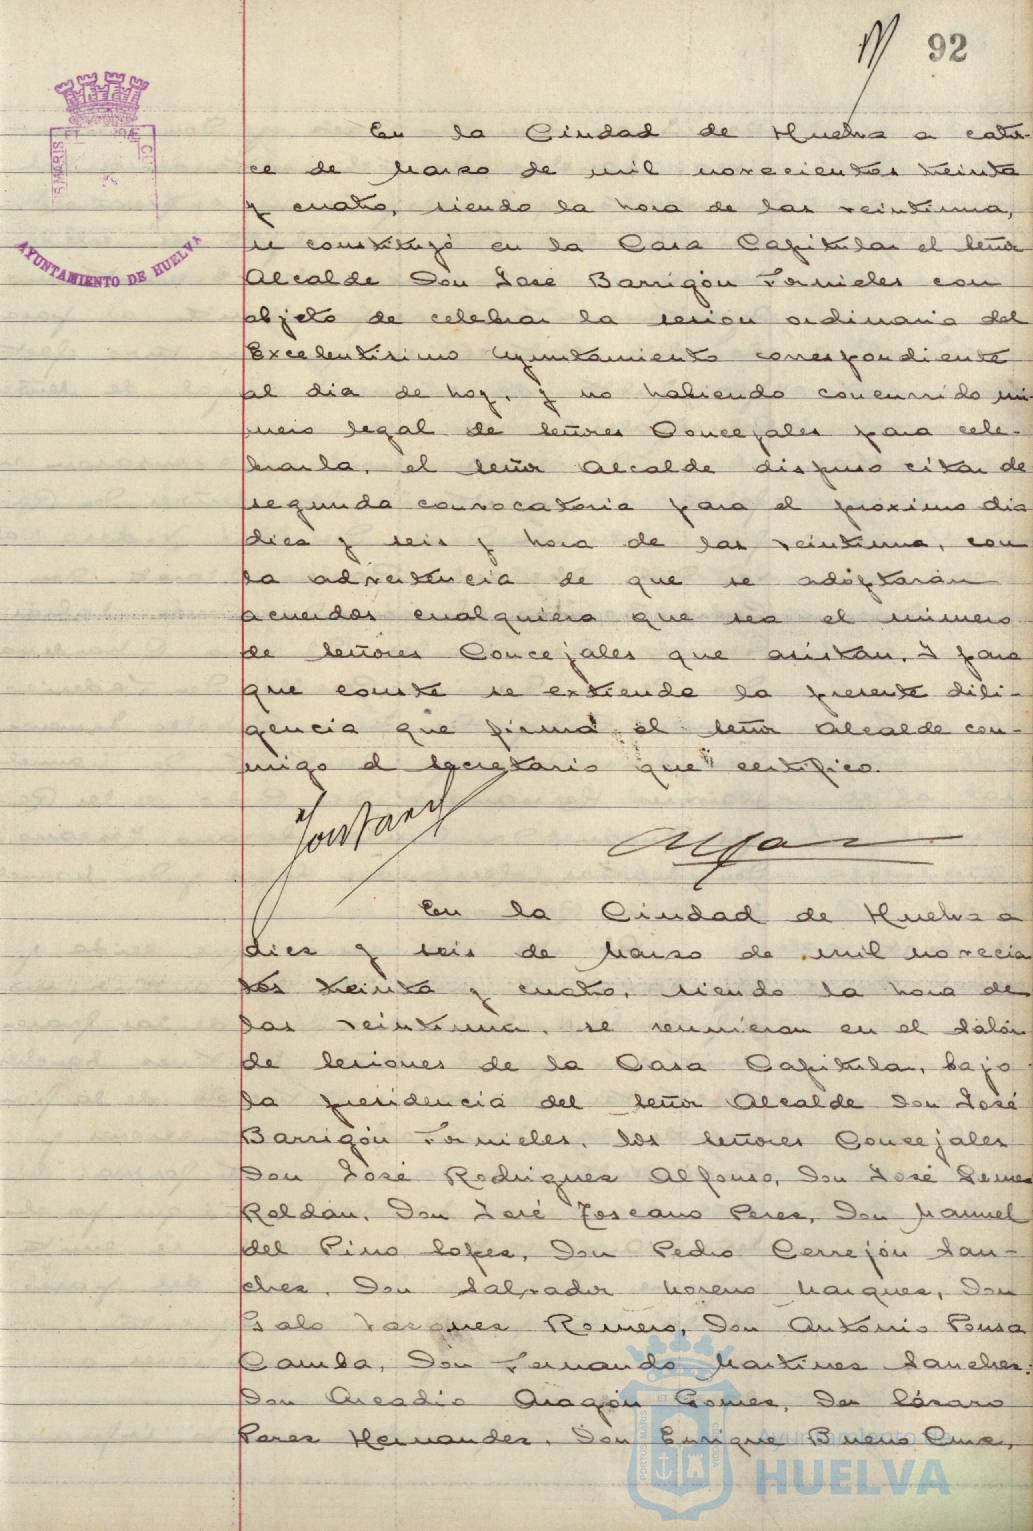 92
AYUNTAMIENTO DE HUELVA
En la Ciudad de Huelva a cator-
ce de Marzo de mil novecientos treinta
y cuatro, siendo la hora de las veintiuna,
se constituyó en la Casa Capitular el Señor
Alcalde Don José Barrigón Fornieles con
objeto de celebrar la sesion ordinaria del
Excelentísimo Ayuntamiento correspondiente
al dia de hoy, y no habiendo concurrido nú-
mero legal de Señores Concejales para cele-
brarla, el Señor Alcalde dispuso citar de
segunda convocatoria para el proximo dia
diez y seis y hora de las veintiuna, con
la advertencia de que se adoptarán
acuerdos cualquiera que sea el número
de Señores Concejales que asistan. Y para
que conste se extiende la presente dili-
gencia que firma el Señor Alcalde con-
migo el Secretario que certifico.
En la Ciudad de Huelva a
diez y seis de Marzo de mil novecien
tos treinta y cuatro, siendo la hora de
las veintiuna, se reunieron en el Salón
de Sesiones de la Casa Capitular, bajo
la presidencia del Señor Alcalde Don José
Barrigón Fornieles, los Señores Concejales
Don José Rodriguez Alfonso, Don José
Roldán, Don José Toscano Perez, Don Manuel
del Pino Lopez, Don Pedro Cerrejón San-
chez, Don Salvador Moreno Marquez, Don
Galo Vazquez Romero, Don Antonio Pousa
Camba, Don Fernando Martinez Sanchez,
Don Arcadio Aragón Gomez, Don Lázaro
Perez Hernandez, Don Enrique Bueno Cruz,
Ayuntamiento de
HUELVA